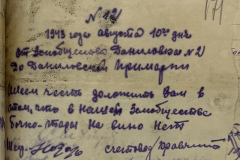 № 12
1943 года августа 10го дня
От Земобщества Даниловка №2
До Даниловской Примарии
Имеем честь доложить Вам в
том, что в нашем Земобществе
бочко-тары на вино нет
счетовод
171